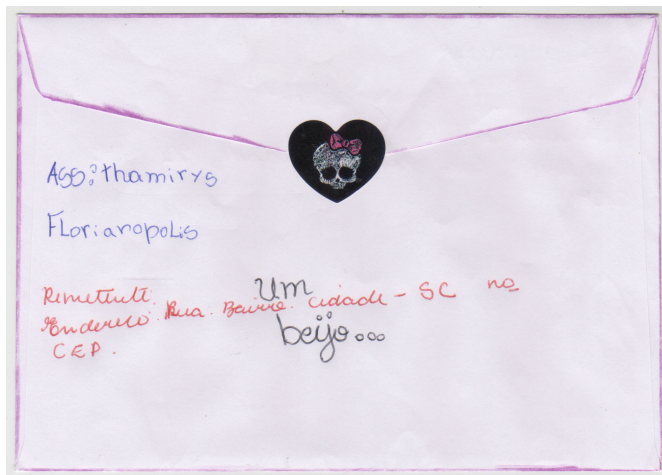 Ass: thamirys
Florianopolis
Um
Remetente.
Endereço. Rua. Bairro. Cidade - SC no
CEP.
beijo...